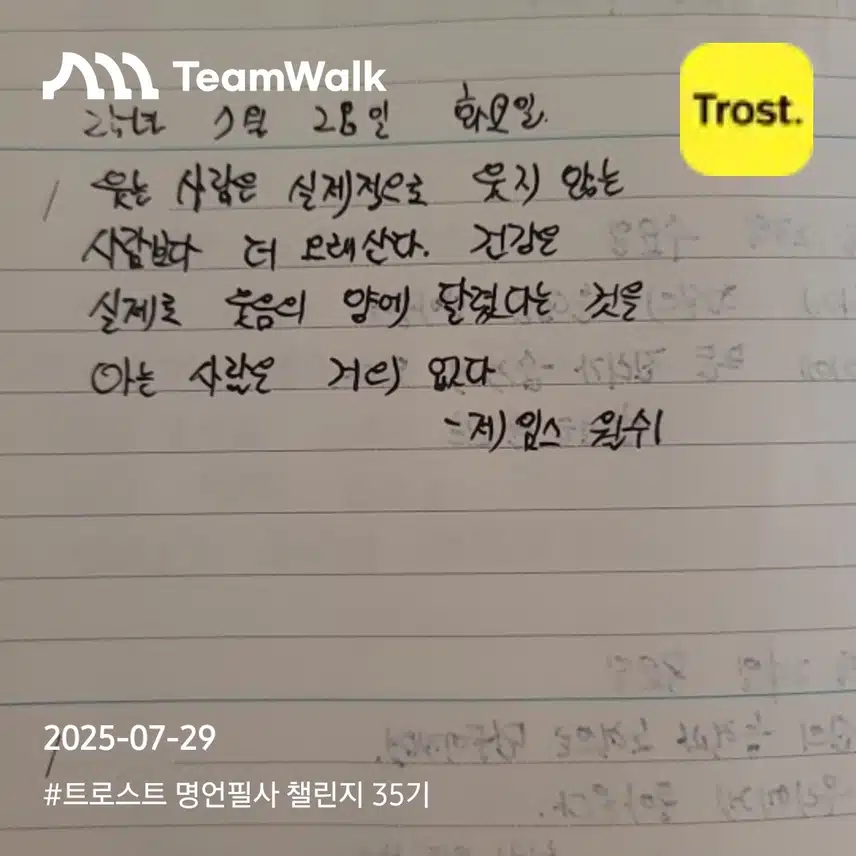 TeamWalk
Trost.
25년 7월 28일 화요일.
웃는 사람은 실제적으로 웃지 않는
사람보다 더 오래산다. 건강은
실제로 웃음의 양에 달렸다는 것을
아는 사람은 거의 없다
- 제임스 월쉬
2025-07-29
#트로스트 명언필사 챌린지 35기